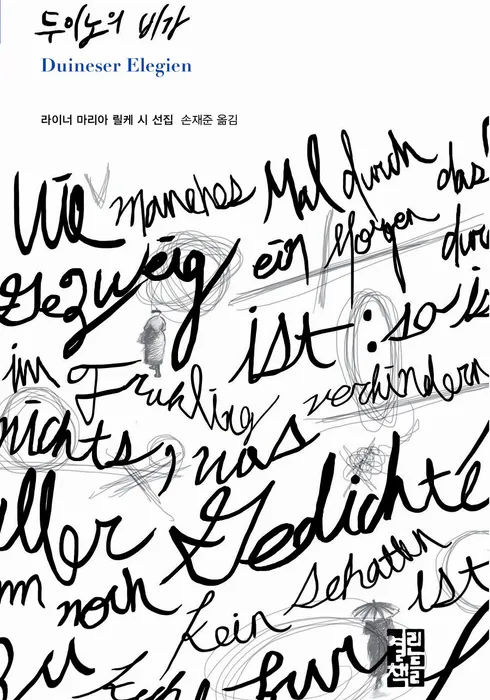 두이노의 비가
Duineser Elegien
라이너 마리아 릴케 시 선집 손재준 옮김
Wie manches Mal durch das
Gezweig ein Morgen dur
ist: so is
im Fruhling verhindern
nichts, was
aller Gedichte
nn noch kein Schatten ist
zu kuhl fur
열린책들